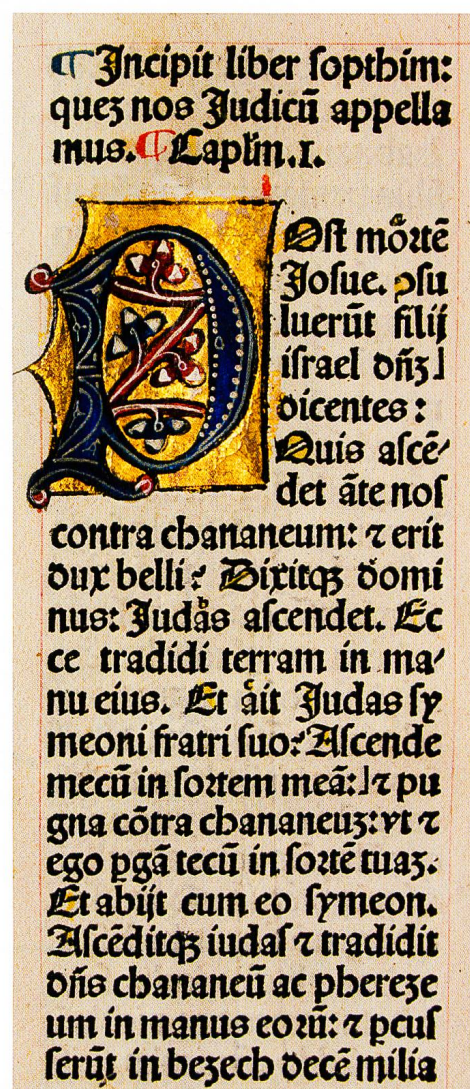 ¶ Incipit liber ſopthim:
quez nos Judicū appella
mus. ¶ Caplm̄.I.
POſt mortē
Joſue. ꝯſu
luerūt filij
iſrael dn̄ꝫ
dicentes :
Quis aſcē⸗
det āte noſ
contra chananeum: ⁊ erit
dux belli? Dixitqꝫ domi
nus: Judas aſcendet. Ec
ce tradidi terram in ma⸗
nu eius. Et ait Judas ſy
meoni fratri ſuo: Aſcende
mecū in ſortem meā: ⁊ pu
gna cōtra chananeuz: vt ⁊
ego ꝑgā tecū in ſortē tuaz.
Et abijt cum eo ſymeon.
Aſcēditqꝫ iudaſ ⁊ tradidit
dn̄s chananeū ac phereze
um in manus eorū: ⁊ ꝑcuſ
ſerūt in bezech decē milia